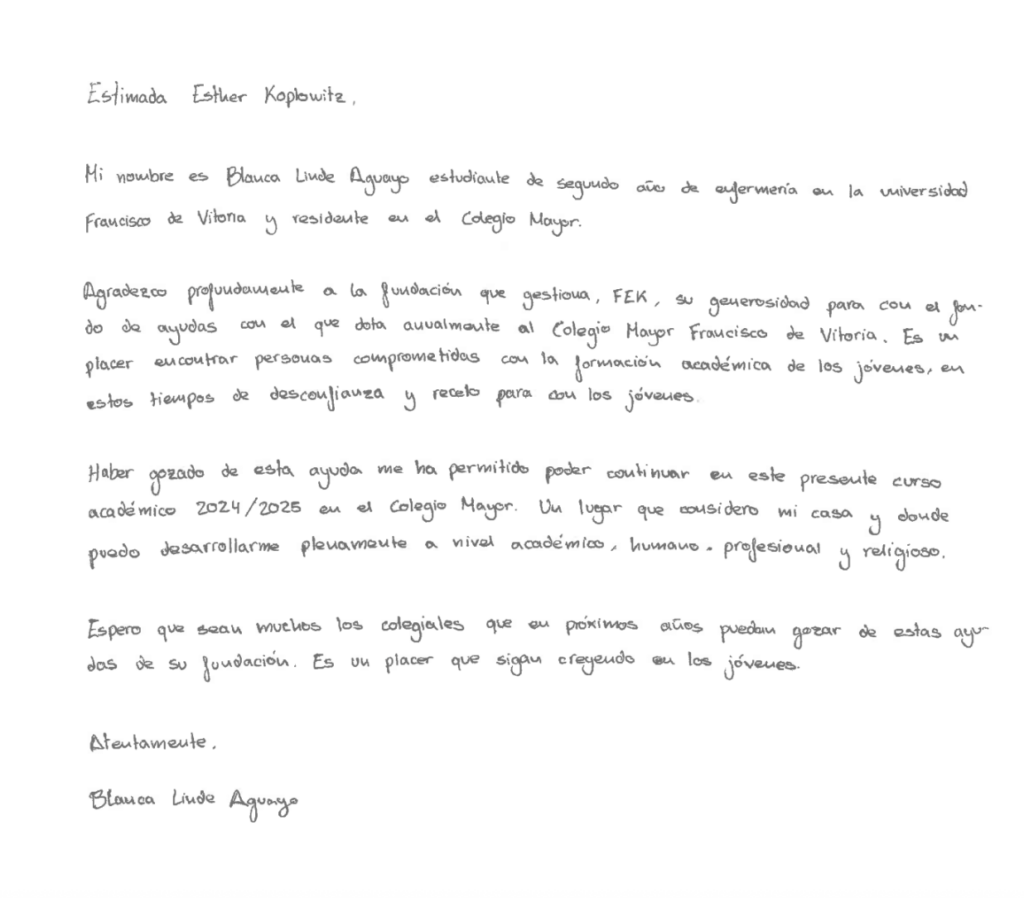 Estimada Esther Koplowitz,
Mi nombre es Blanca Linde Aguayo estudiante de segundo año de enfermería en la universidad
Francisco de Vitoria y residente en el Colegio Mayor.
Agradezco profundamente a la fundación que gestiona, FEK, su generosidad para con el fon-
do de ayudas con el que dota anualmente al Colegio Mayor Francisco de Vitoria. Es un
placer encontrar personas comprometidas con la formación académica de los jóvenes, en
estos tiempos de desconfianza y recelo para con los jóvenes.
Haber gozado de esta ayuda me ha permitido poder continuar en este presente curso
académico 2024/2025 en el Colegio Mayor. Un lugar que considero mi casa y donde
puedo desarrollarme plenamente a nivel académico, humano, profesional y religioso.
Espero que sean muchos los colegiales que en próximos años puedan gozar de estas ayu-
das de su fundación. Es un placer que sigan creyendo en los jóvenes.
Atentamente,
Blanca Linde Aguayo